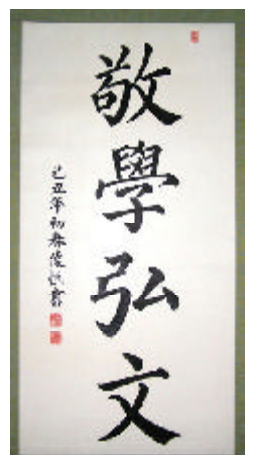 敬學弘文
己丑年初春俊